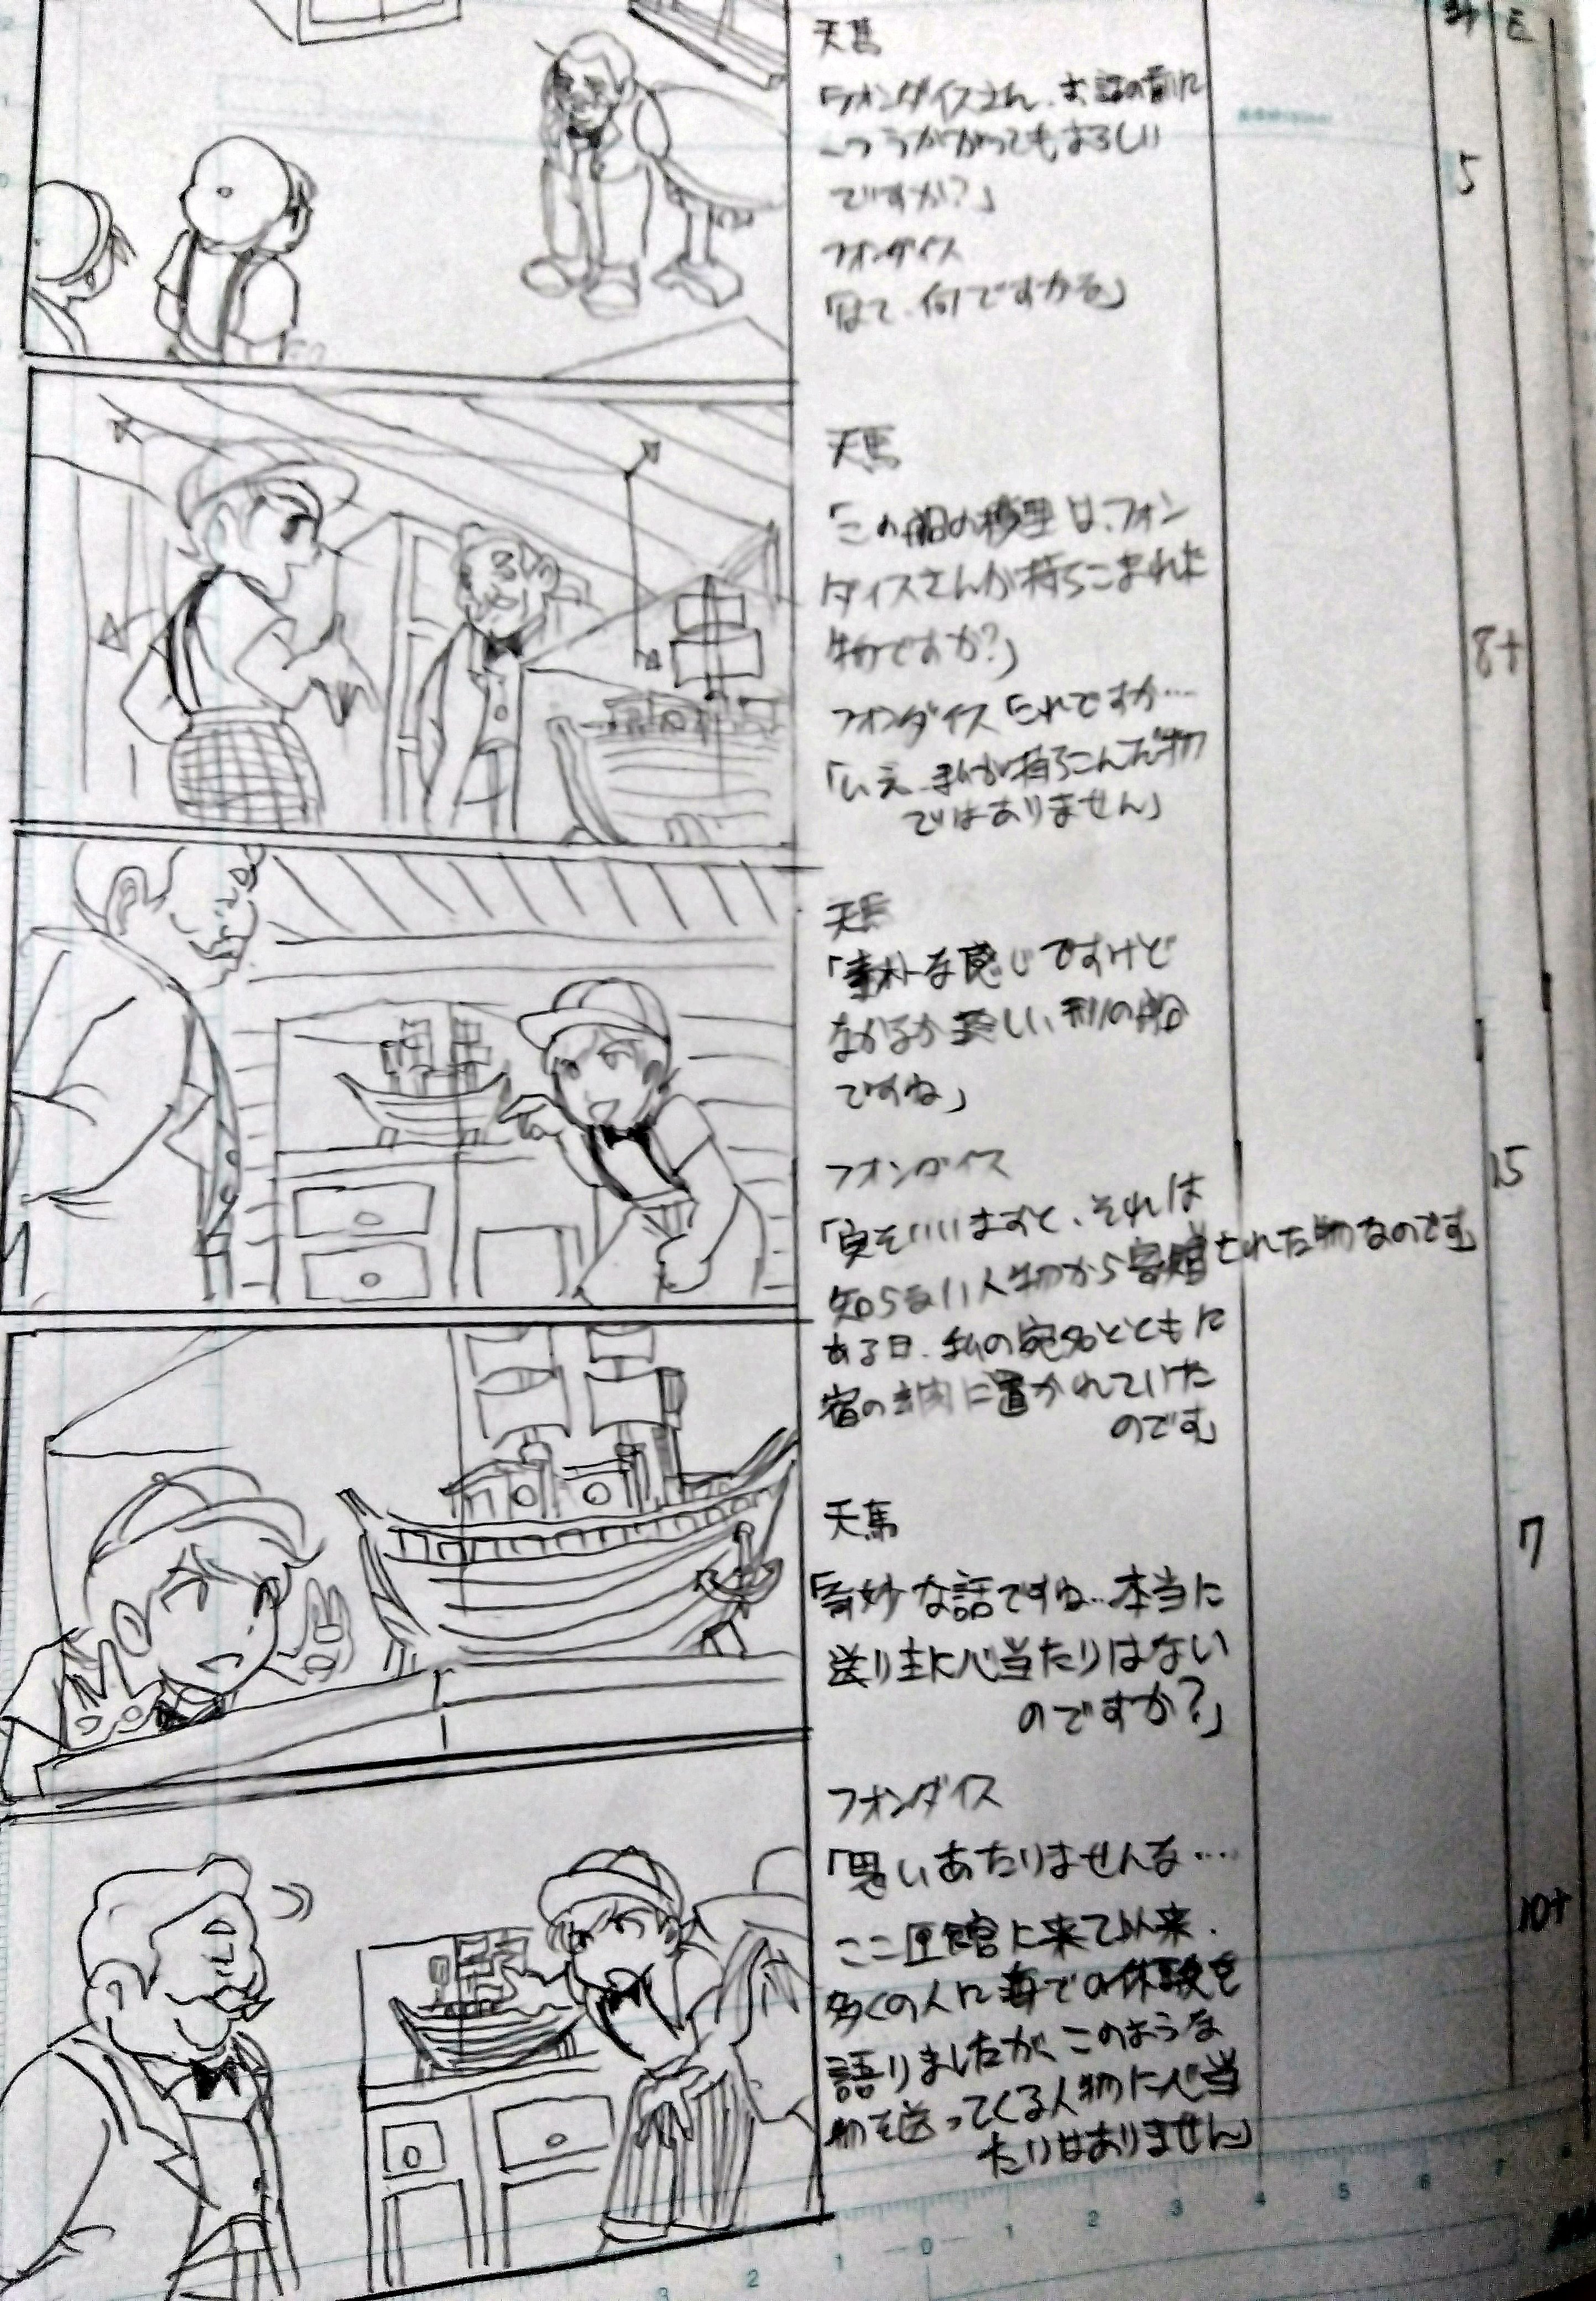 天馬
「フォンダイスさん、お話の前に
一つうかがってもよろしい
ですか?」
フォンダイス
「はて、何ですかな」
5
天馬
「この船の模型は、フォン
ダイスさんが持ちこまれた
物ですか?」
フォンダイス「これですか…
「いえ、私が持ちこんだ物
ではありません」
8+
天馬
「素朴な感じですけど
なかなか美しい形の船
ですね」
フォンダイス
「実をいいますと、それは
知らない人物から寄贈された物なのです」
ある日、私の宛名とともに
宿の玄関に置かれていた
のです」
15
天馬
「奇妙な話ですね…本当に
送り主に心当たりはない
のですか?」
7
フォンダイス
「思いあたりませんな…
ここ 館に来て以来、
多くの人に海での体験を
語りましたが、このような
物を送ってくる人物に心当
たりはありません」
10+
3 2 1 0 1 2 3 4 5 6 7 8